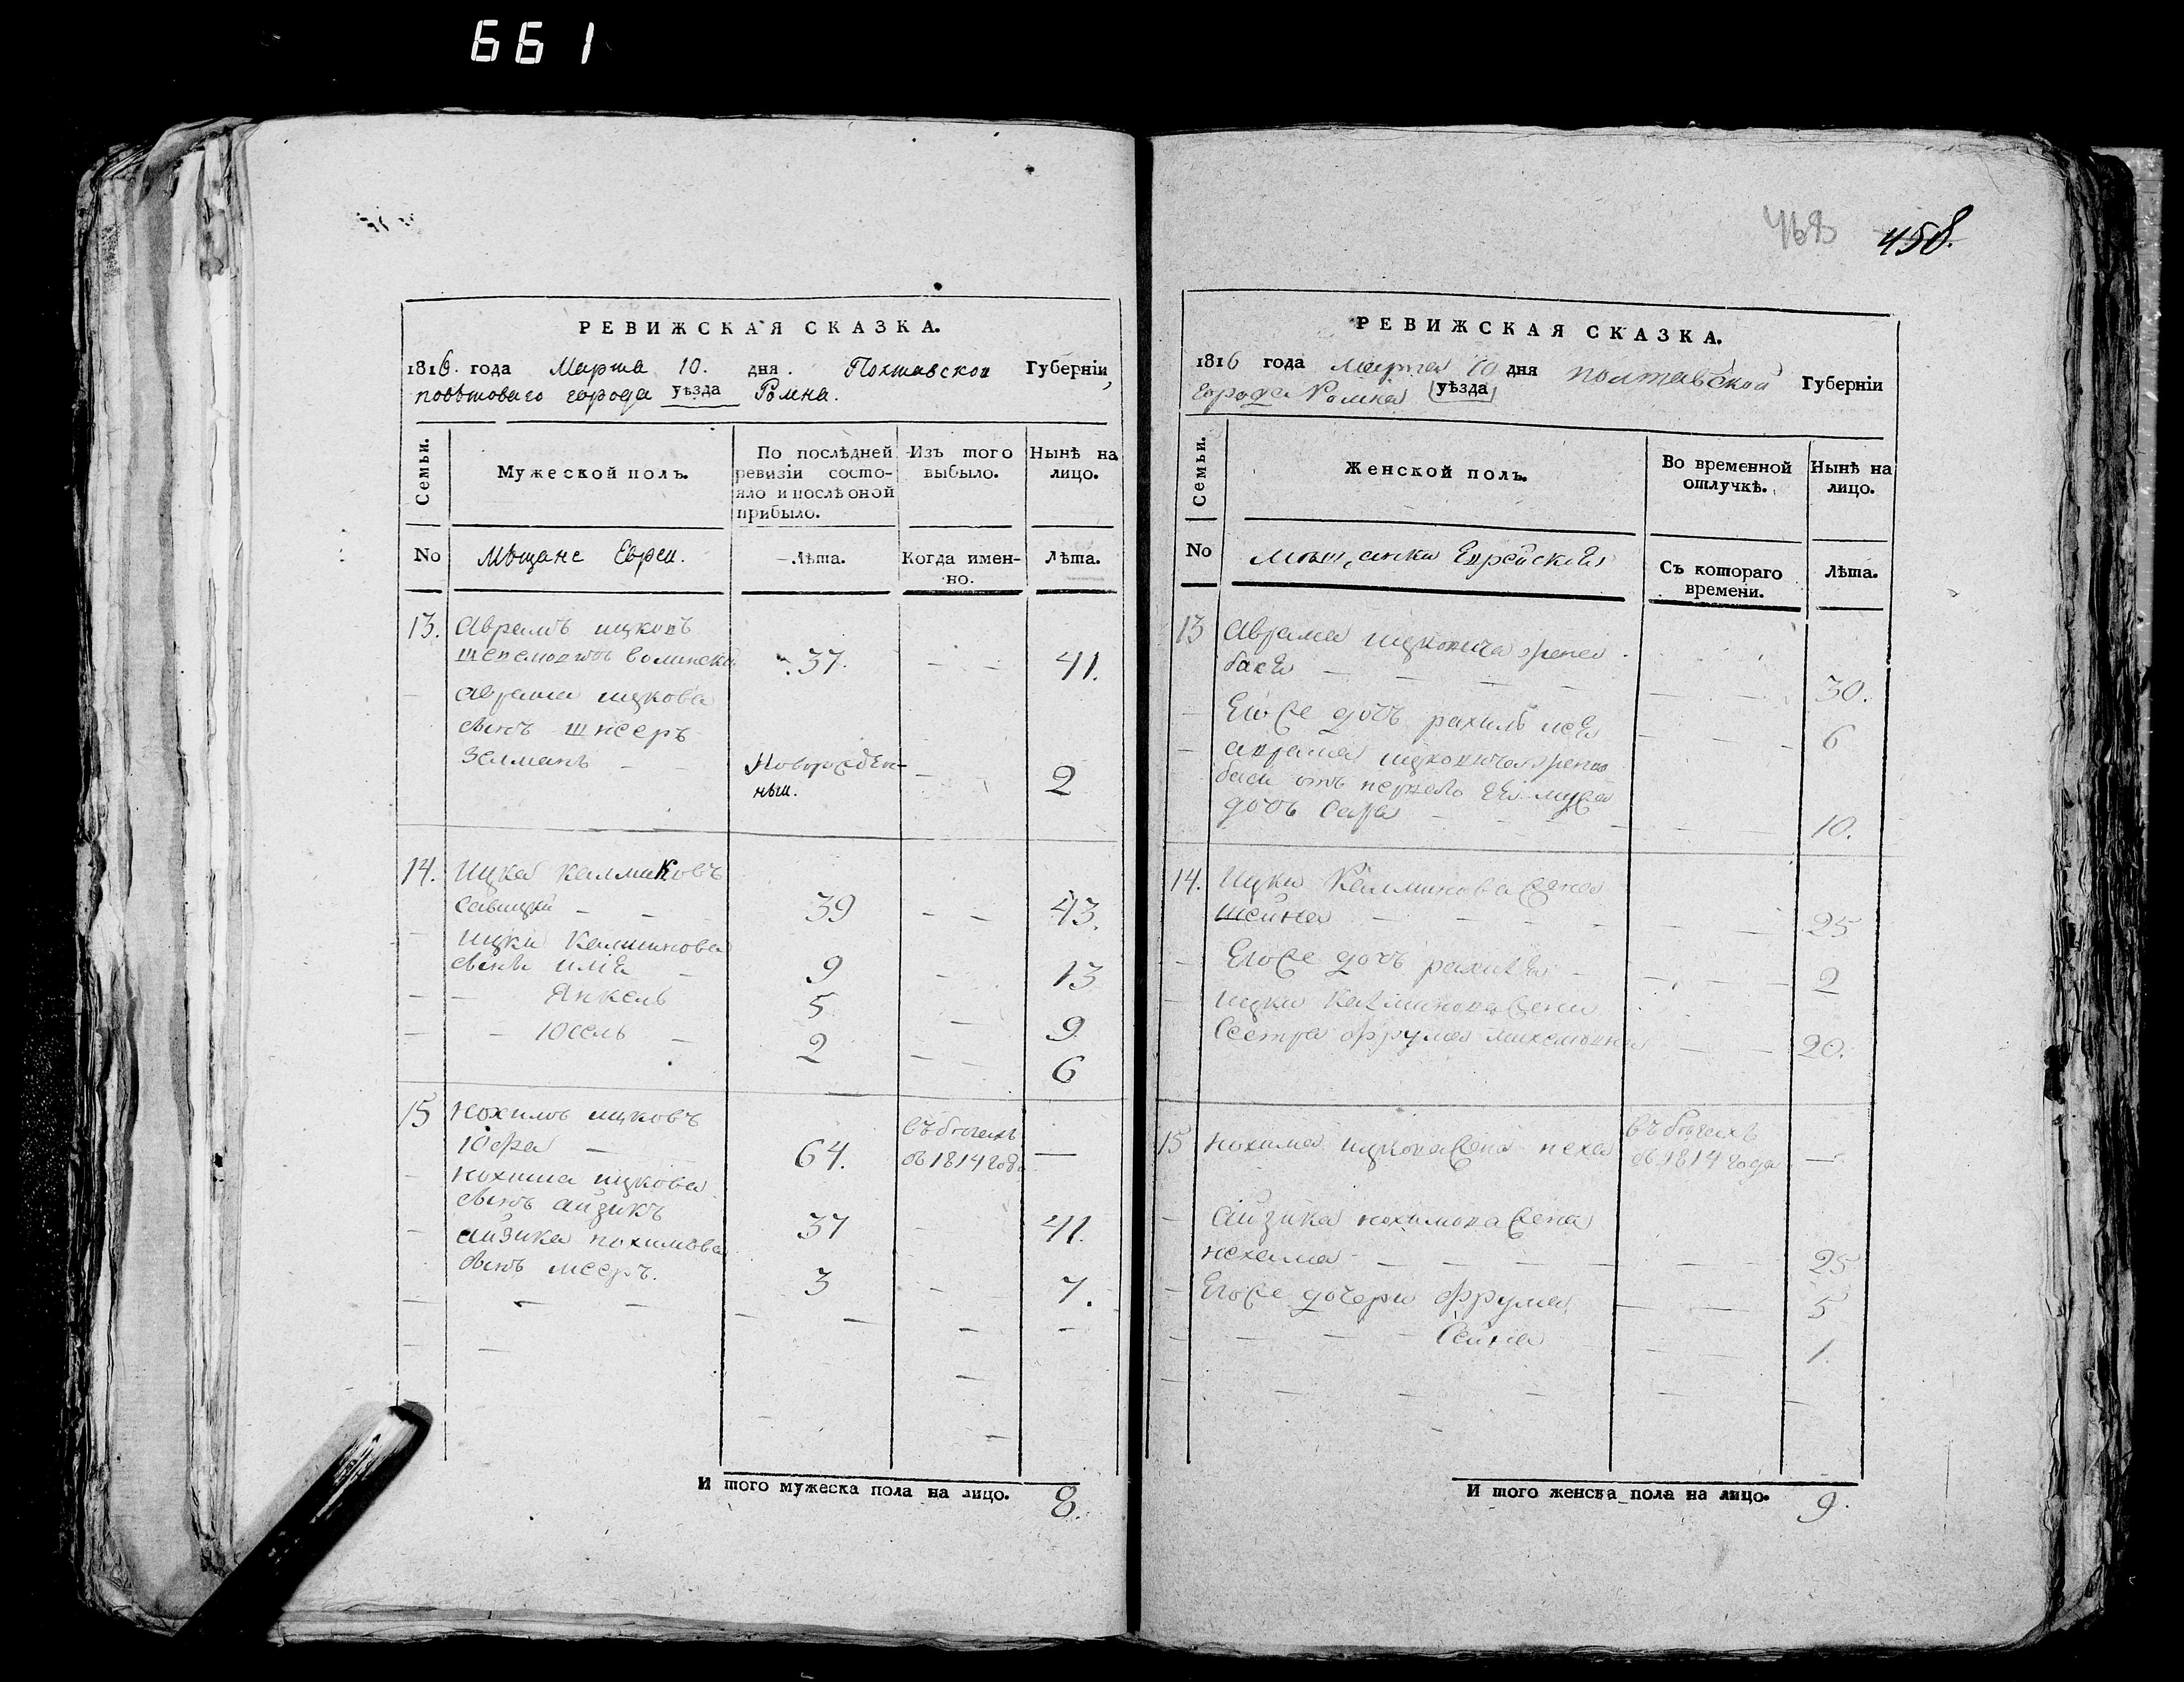 661
468
458.
РЕВИЖСКАЯ СКАЗКА.
1816. года Марта 10. дня. Полтавской Губерніи,
повѣтоваго города уѣзда Ромна.
Семьи.
Мужеской полъ.
По послѣдней
ревизіи состо-
яло и послѣ оной
прибыло.
Изъ того
выбыло.
Нынѣ на
лицо.
No
Мѣщане Евреи.
Лѣта.
Когда имен-
но.
Лѣта.
13. Аврамъ ицковъ
37. 41.
Аврама ицкова
сынъ шнееръ
Зелманъ Новорожден-
ный. 2
14. Ицка калмановъ
Савицкій 39 43.
Ицки Калманова
сынъ илія 9 13
Янкель 5 9
Юсель 2 6
15 Нохимъ ицковъ
Юфа 64. въ бѣгахъ
съ 1814 года —
Нохима ицкова
сынъ айзикъ 37 41.
айзика нохимова
сынъ мееръ. 3 7.
И того мужеска пола на лицо. 8.
РЕВИЖСКАЯ СКАЗКА.
1816 года марта 10 дня полтавской Губерніи
города Ромна уѣзда
Семьи.
Женской полъ.
Во временной
отлучкѣ.
Нынѣ на
лицо.
No
мѣщанки Еврейскія
Съ котораго
времени.
Лѣта.
13 Аврама ицковича жена
бася 30.
Его же дочь рахиль 6
аврама ицковича жены
баси отъ перваго ея мужа
дочь Сара 10.
14. Ицки Калманова жена
шейна 25
Его же дочь 2
ицки Калманова жены
Сестра фрума 20.
15 Нохима ицкова жена неха въ бѣгахъ
съ 1814 года —
айзика нохимова жена
нехама 25
Его же дочери фрума 5
Сейна 1.
И того женска пола на лицо. 9.